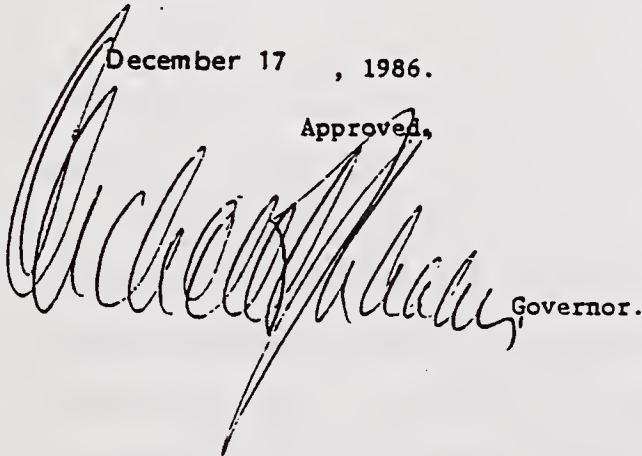 December 17 , 1986.
Approved,
Governor.